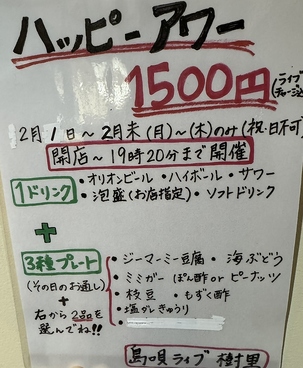 ハッピーアワー
1500円 (ライブチャージ込
2月1日～2月末(月)～(木)のみ(祝日不可)
開店～19時20分まで開催
1ドリンク
・オリオンビール ・ハイボール ・サワー
・泡盛(お店指定) ・ソフトドリンク
+
3種プレート
(その日のお通し)
+
右から2品を
選んでね!!
・ジーマーミー豆腐 ・海ぶどう
・ミミガー ぽん酢orピーナッツ
・枝豆 ・もずく酢
・塩ダレきゅうり
・
島唄ライブ 樹里